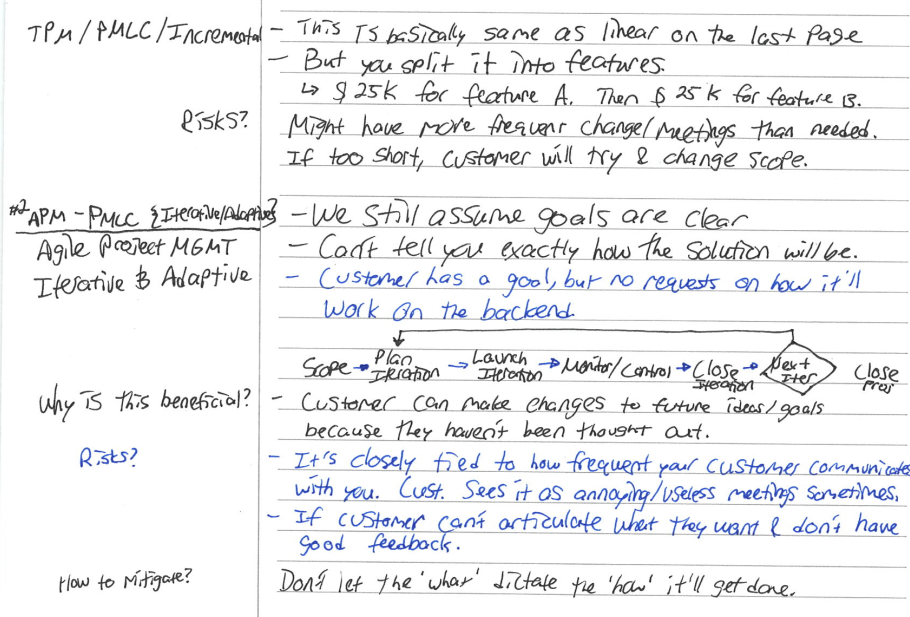 TPM/PMLC/Incremental - This is basically same as linear on the last page
- But you split it into features.
↳ $25K for feature A. Then $25K for feature B.
Risks? Might have more frequent change/meetings than needed.
If too short, customer will try & change scope.
#2 APM - PMLC {Iterative/Adaptive} - We still assume goals are clear
Agile Project MGMT - Can't tell you exactly how the solution will be.
Iterative & Adaptive - Customer has a goal, but no requests on how it'll
work on the backend.
Scope → Plan Iteration → Launch Iteration → Monitor/Control → Close Iteration → Next Iter Close Proj
Why is this beneficial? - Customer can make changes to future ideas/goals
because they haven't been thought out.
Risks? - It's closely tied to how frequent your customer communicates
with you. Cust. sees it as annoying/useless meetings sometimes.
- If customer can't articulate what they want & don't have
good feedback.
How to mitigate? Don't let the 'what' dictate the 'how' it'll get done.